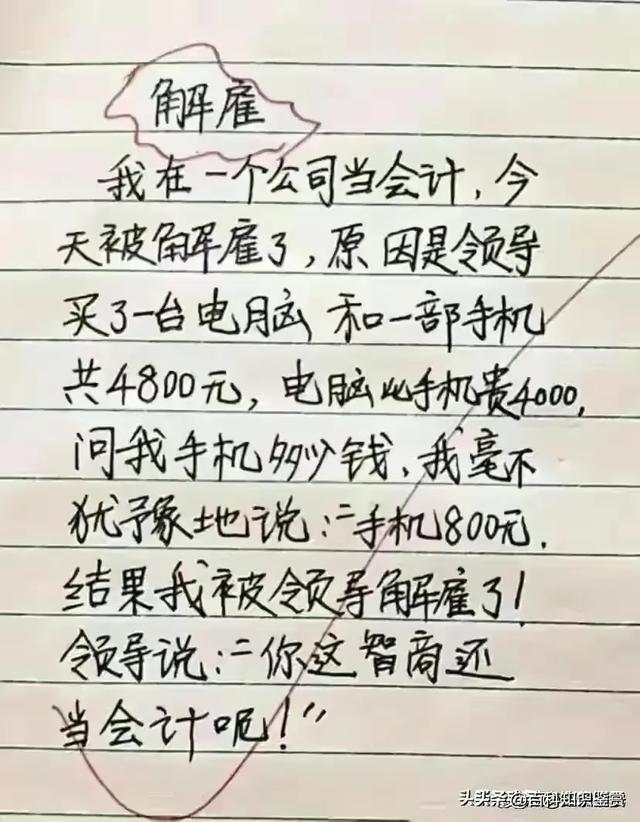 解雇
我在一个公司当会计，今
天被解雇了，原因是领导
买了一台电脑和一部手机
共4800元，电脑比手机贵4000，
问我手机多少钱、我毫不
犹豫地说："手机800元.
结果我被领导解雇了！
领导说："你这智商还
当会计呢！"
头条 @百科知识鉴赏